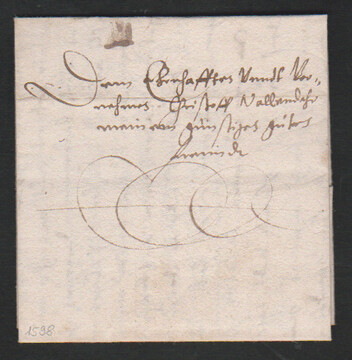 Dem Ehrhafften Vnndt Vor-
nehmen Cristoff
meinem günstigen guten
freundt
1598